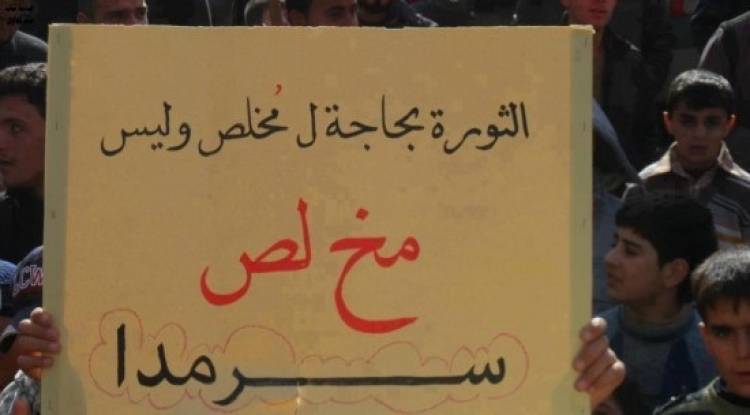 الثورة بحاجة ل مُخلص وليس
مخ لص
سرمدا
CW